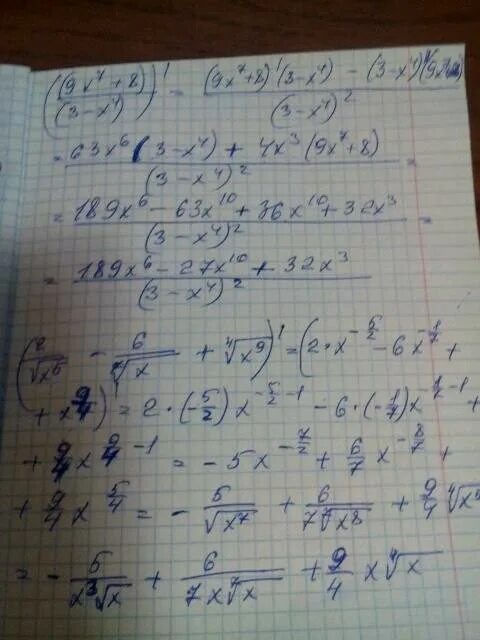 ((9x⁷+8)/(3-x⁴))' = ((9x⁷+8)'(3-x⁴) - (3-x⁴)'(9x⁷+8))/(3-x⁴)²
= (63x⁶(3-x⁴) + 4x³(9x⁷+8))/(3-x⁴)² =
= (189x⁶ - 63x¹⁰ + 36x¹⁰ + 32x³)/(3-x⁴)² =
= (189x⁶ - 27x¹⁰ + 32x³)/(3-x⁴)²
(2/√x⁵ - 6/⁷√x + ⁴√x⁹)' = (2·x^(-5/2) - 6x^(-1/7) +
+ x^(9/4))' = 2·(-5/2)x^(-5/2-1) - 6·(-1/7)x^(-1/7-1) +
+ 9/4 x^(9/4-1) = -5x^(-7/2) + 6/7 x^(-8/7) +
+ 9/4 x^(5/4) = -5/√x⁷ + 6/(7⁷√x⁸) + 9/4 ⁴√x⁵
= -5/(x³√x) + 6/(7x⁷√x) + 9/4 x⁴√x